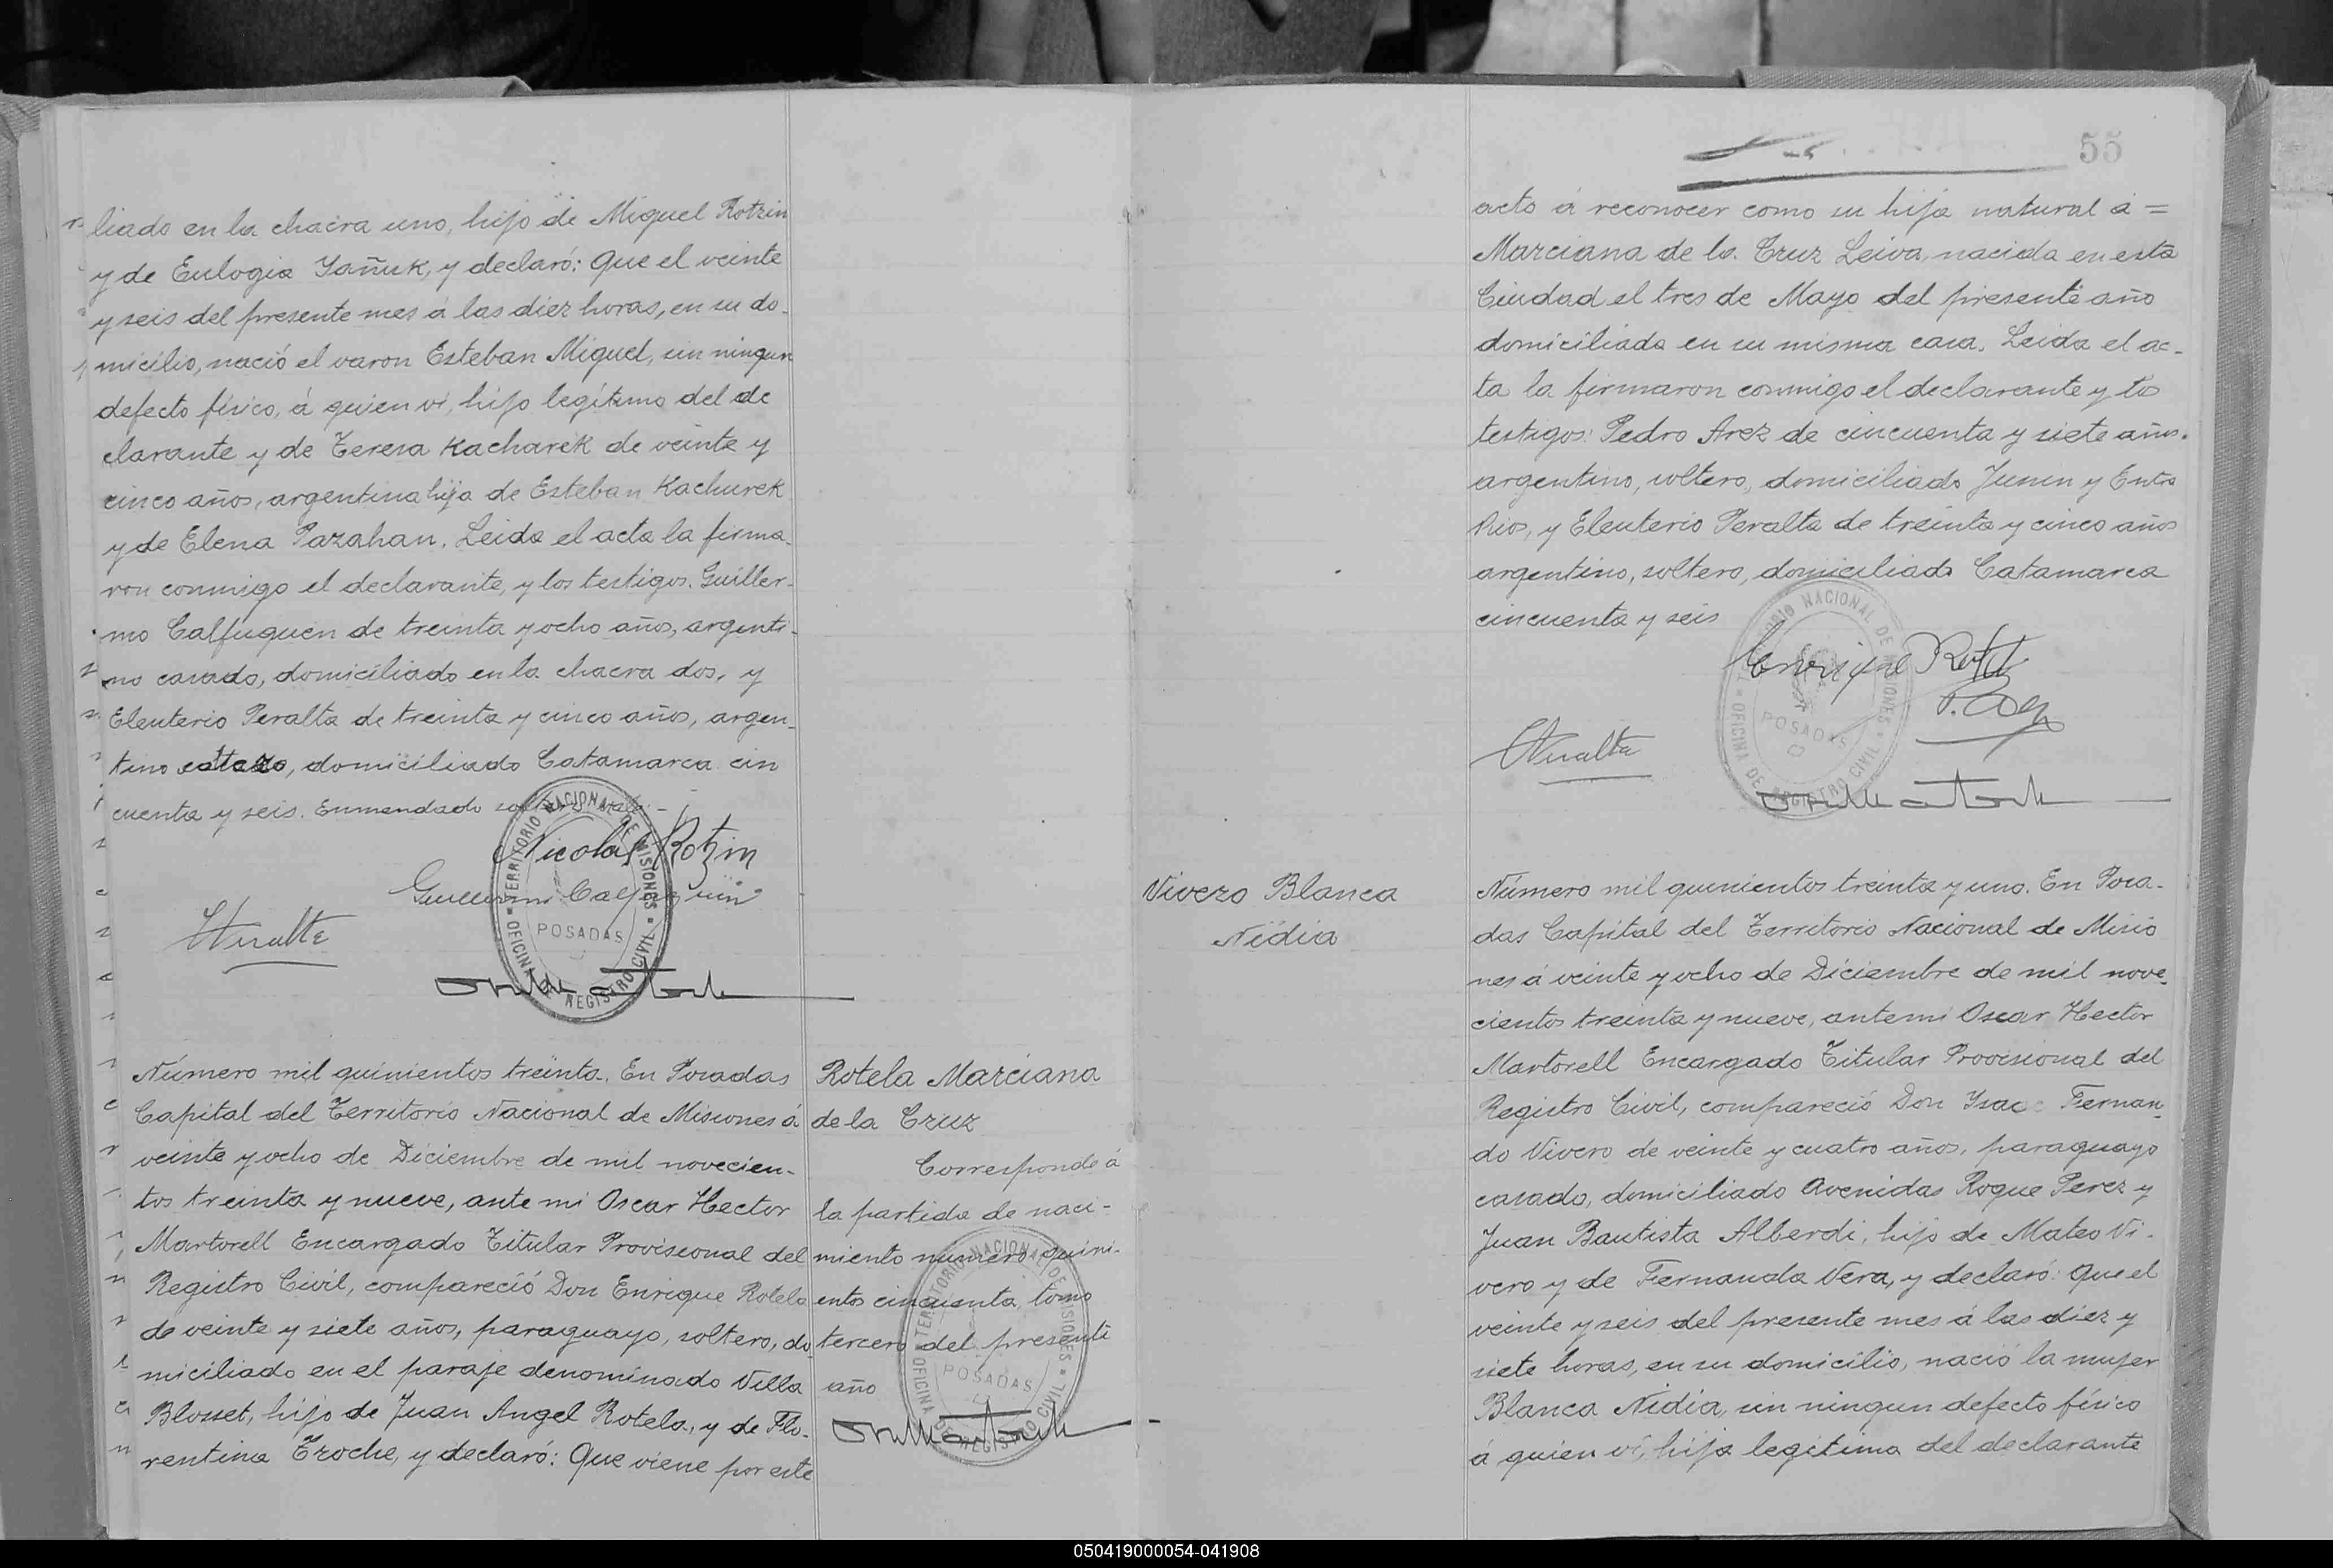 liado en la chacra uno, hijo de Miguel Rotzin
y de Eulogia Yañuk, y declaró: Que el veinte
y seis del presente mes á las diez horas, en su do-
micilio, nació el varon Esteban Miguel, sin ningun
defecto físico, á quien ví, hijo legítimo del de
clarante y de Teresa Kacharek de veinte y
cinco años, argentina hija de Esteban Kachurek
y de Elena Pazahan. Leida el acta la firma-
ron conmigo el declarante, y los testigos. Guiller-
mo Calfuquen de treinta y ocho años, argenti-
no casado, domiciliado en la chacra dos, y
Eleuterio Peralta de treinta y cinco años, argen-
tino soltero, domiciliado Catamarca cin
cuenta y seis. Enmendado soltero. vale.-
Nicolas Rotzin
Guillermo Calfuquin
EPeralta
OFICINA DE REGISTRO CIVIL
TERRITORIO NACIONAL DE MISIONES
POSADAS
Número mil quinientos treinta. En Posadas
Capital del Territorio Nacional de Misiones á
veinte y ocho de Diciembre de mil novecien-
tos treinta y nueve, ante mi Oscar Hector
Martorell Encargado Titular Provisional del
Registro Civil, compareció Don Enrique Rotela
de veinte y siete años, paraguayo, soltero, do
miciliado en el paraje denominado Villa
Blosset, hijo de Juan Angel Rotela, y de Flo-
rentina Troche, y declaró: Que viene por este
Rotela Marciana
de la Cruz
Corresponde á
la partida de naci-
miento número quini-
entos cincuenta, tomo
tercero del presente
año
OFICINA DE REGISTRO CIVIL
TERRITORIO NACIONAL DE MISIONES
POSADAS
55
acto á reconocer como su hija natural á =
Marciana de la Cruz Leiva, nacida en esta
Ciudad el tres de Mayo del presente año
domiciliada en su misma casa. Leida el ac-
ta la firmaron conmigo el declarante y los
testigos: Pedro Arez de cincuenta y siete años.
argentino, soltero, domiciliado Junin y Entre
Rios, y Eleuterio Peralta de treinta y cinco años
argentino, soltero, domiciliado Catamarca
cincuenta y seis
Enrique Rotela
EPeralta
OFICINA DE REGISTRO CIVIL
TERRITORIO NACIONAL DE MISIONES
POSADAS
Vivero Blanca
Nidia
Número mil quinientos treinta y uno. En Posa-
das Capital del Territorio Nacional de Misio
nes á veinte y ocho de Diciembre de mil nove-
cientos treinta y nueve, ante mi Oscar Hector
Martorell Encargado Titular Provisional del
Registro Civil, compareció Don Ysaac Fernan-
do Vivero de veinte y cuatro años, paraguayo
casado, domiciliado Avenidas Roque Perez y
Juan Bautista Alberdi, hijo de Mateo Vi-
vero y de Fernanda Vera, y declaró: Que el
veinte y seis del presente mes á las diez y
siete horas, en su domicilio, nació la mujer
Blanca Nidia, sin ningun defecto físico
á quien ví, hija legítima del declarante
050419000054-041908